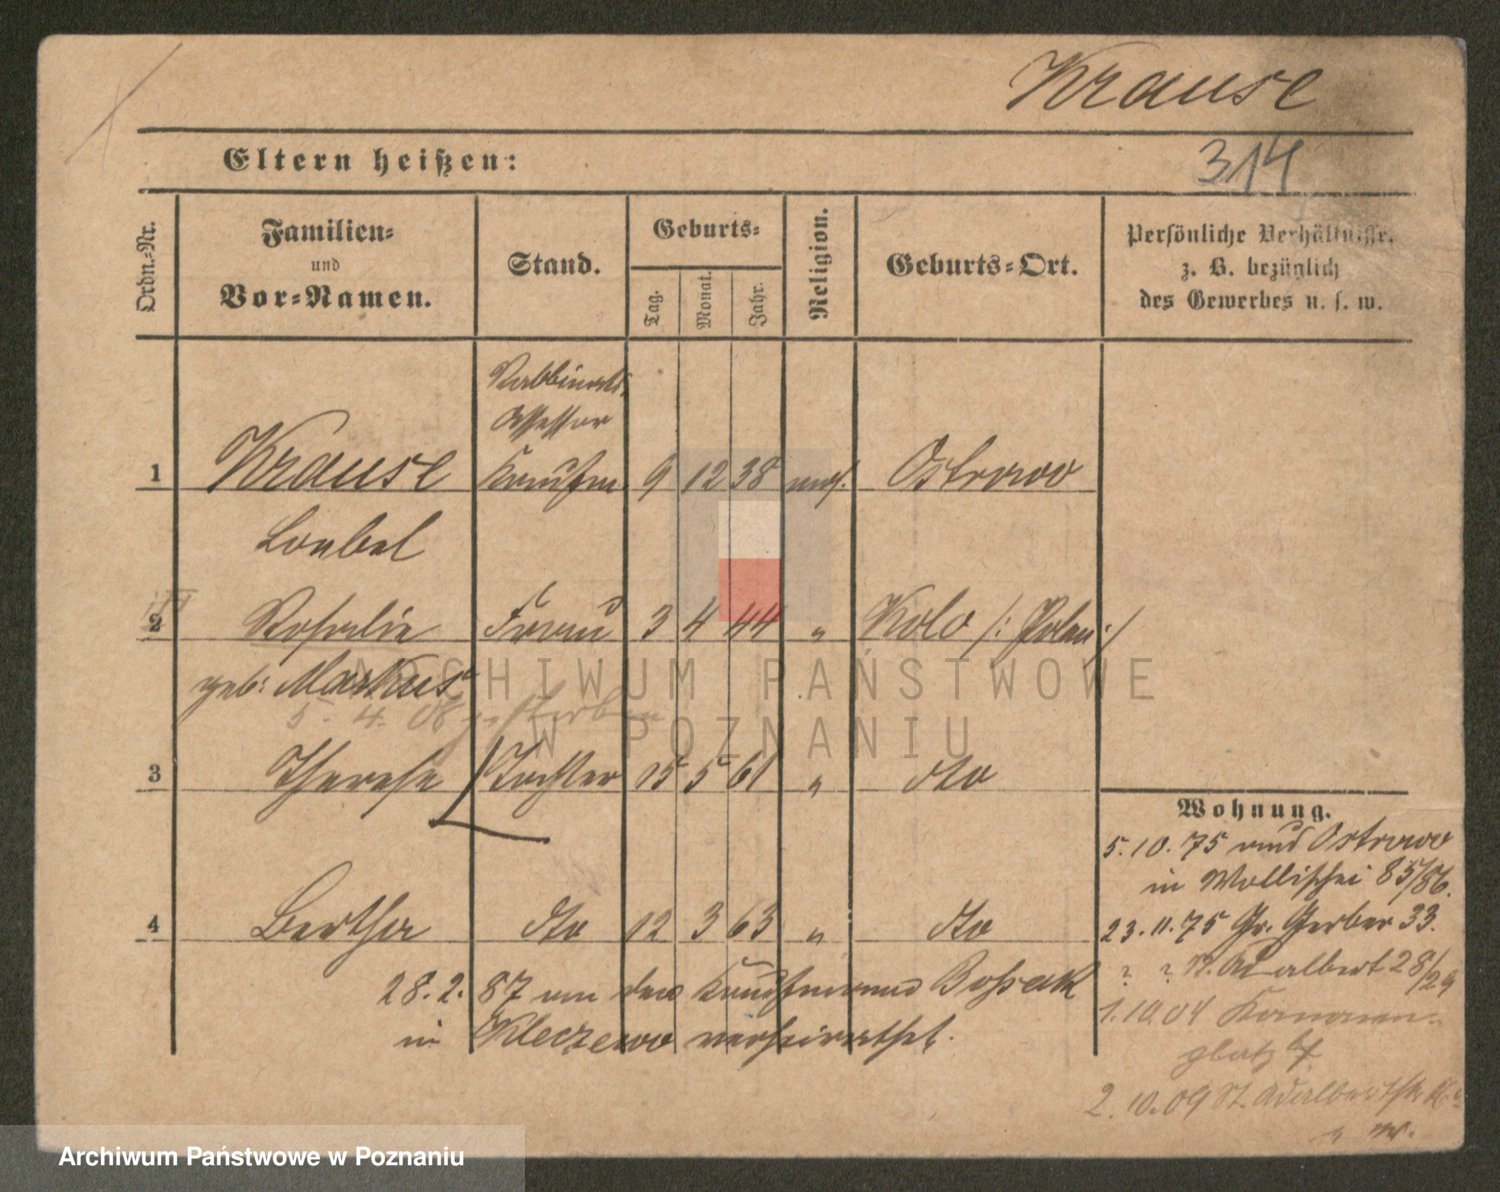 Krause
314
Eltern heißen:
Ordn.-Nr.
Familien-
und
Vor-Namen.
Stand.
Geburts-
Tag.
Monat.
Jahr.
Religion.
Geburts-Ort.
Persönliche Verhältnisse,
z. B. bezüglich
des Gewerbes u. s. w.
Rabbinats
Assessor
1 Krause Kaufm 9 12 38 mos. Ostrowo
Loebel
2 Rosalie Frau 3 4 44 " Kolo /: Polen :/
geb: Markus
5. 4. 08 gestorben
3 Therese Tochter 15 5 61 " dto
4 Bertha dto 12 3 63 " dto
28. 2. 87 an den Kaufmann Bossak
in Kleczewo verheirathet.
Wohnung.
5. 10. 75 aus Ostrowo
in Wallischei 85/86.
23. 11. 75 Gr. Gerber 33.
? ? St. Adalbert 28/29
1. 10 04 Kanonen-
platz
2. 10. 09 St. Adalbertstr.
ARCHIWUM PAŃSTWOWE
W POZNANIU
Archiwum Państwowe w Poznaniu